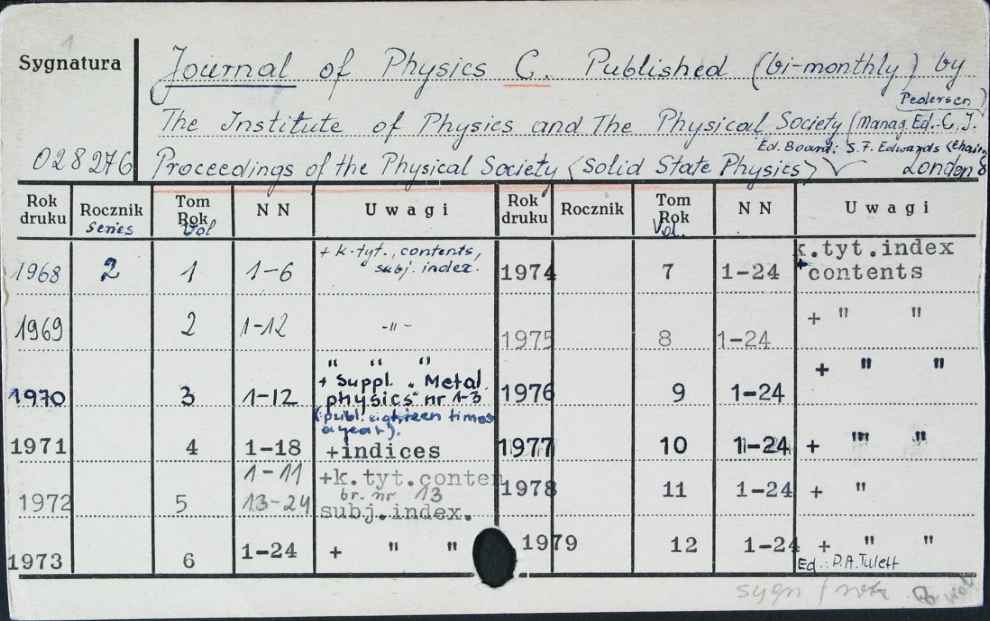 Sygnatura
1
028276
Journal of Physics C. Published (bi-monthly) by
Pedersen)
The Institute of Physics and The Physical Society (Manag. Ed. C. J.
Ed. Board: S. F. Edwards (chairm
Proceedings of the Physical Society <Solid State Physics> London 8
Rok druku Rocznik Tom Rok N N Uwagi Rok druku Rocznik Tom Rok N N Uwagi
series Vol Vol.
1968 2 1 1-6 + k.tyt., contents, subj. index. 1974 7 1-24 k.tyt.index + contents
1969 2 1-12 -"- 1975 8 1-24 + " "
1970 3 1-12 " " " + Suppl. "Metal physics" nr 1-3 1976 9 1-24 + " "
(publ. eighteen times a year).
1971 4 1-18 +indices 1977 10 1-24 + " "
1972 5 1-11 13-24 +k.tyt.conten br. nr 13 subj.index. 1978 11 1-24 + "
1973 6 1-24 + " " 1979 12 1-24 + " "
Ed.: P.A. Tulett
sygn